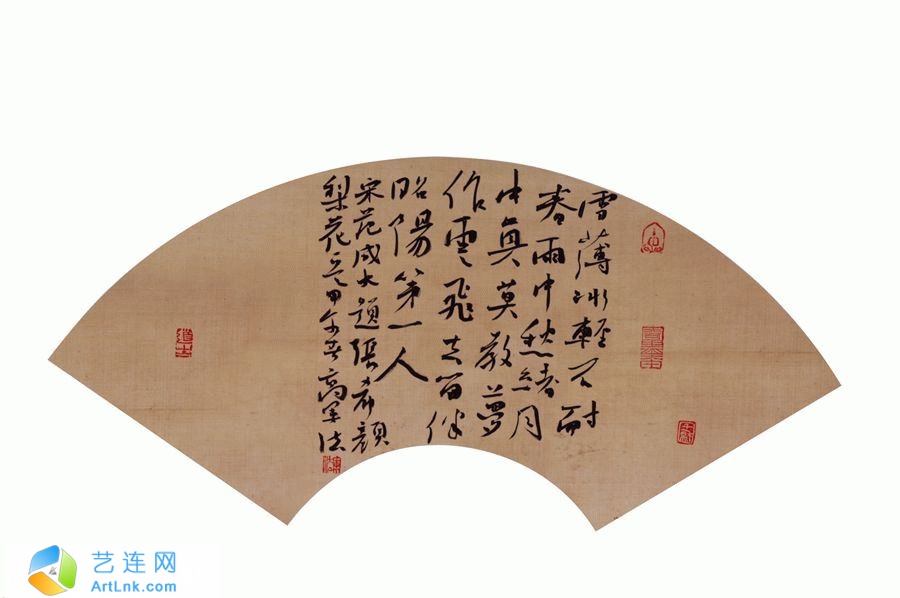 雪薄冰輕不耐
春雨中愁緒月
中真莫教夢
作雲飛去留伴
昭陽第一人
宋范成大題張希顏
梨花 甲午春高軍法
艺连网
ArtLnk.com